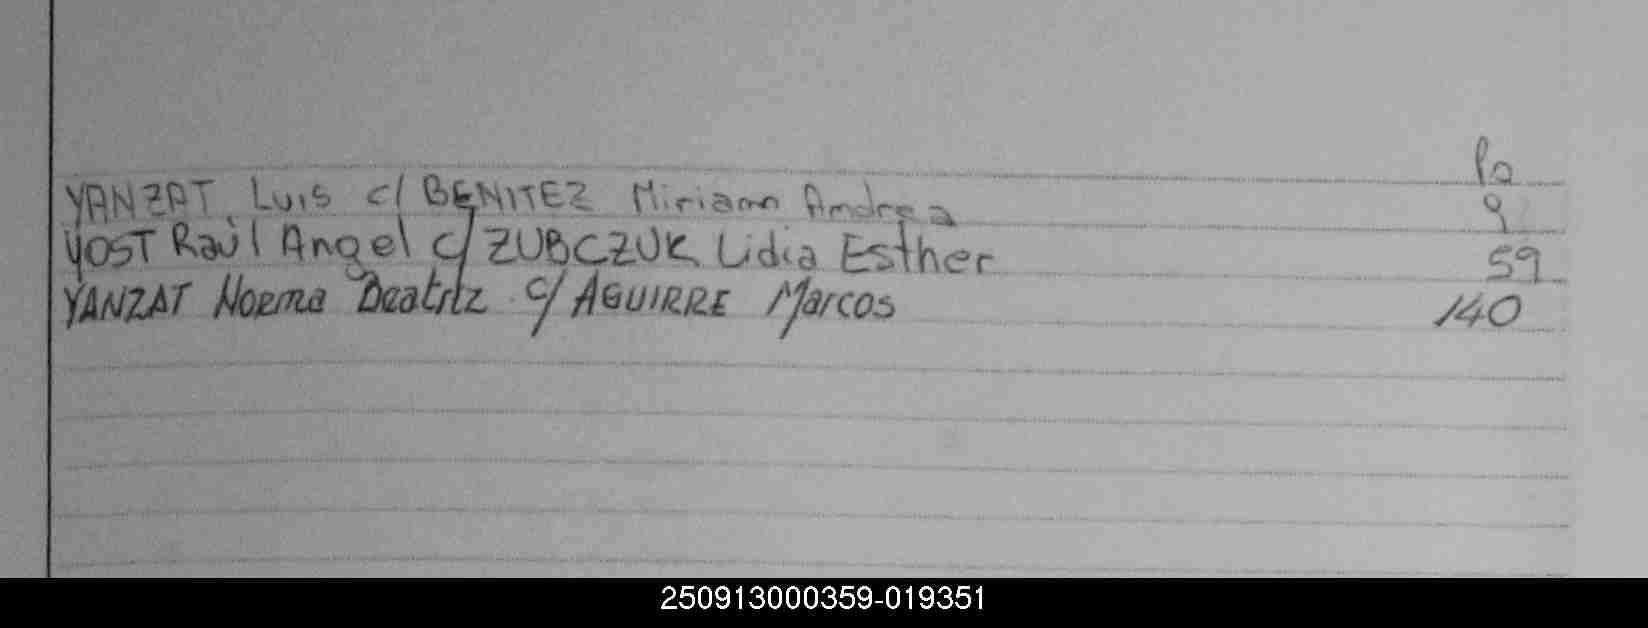 Pa
YANZAT, Luis c/ BENITEZ Miriam Andrea 9
YOST Raúl Angel c/ ZUBCZUK Lidia Esther 59
YANZAT Norma Beatriz c/ AGUIRRE Marcos 140
250913000359-019351